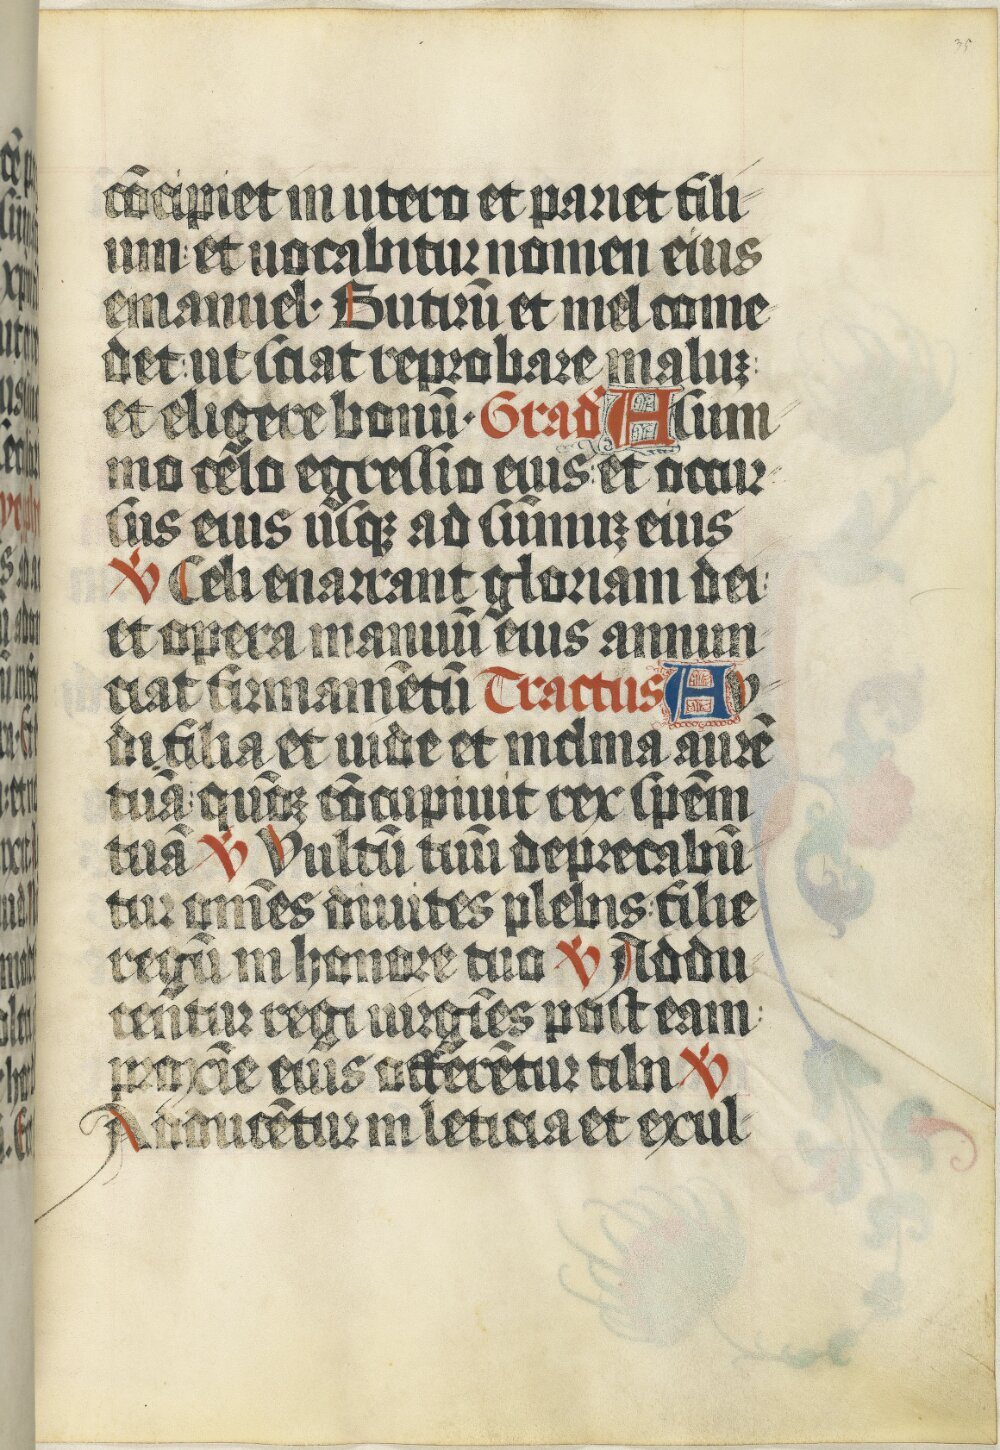 35
cōcipiet in utero et pariet fili
um: et uocabitur nomen eius
emanuel· Butirū et mel come
det: ut sciat reprobare maluꝫ:
et eligere bonū· Grad' A sum
mo celo egressio eius: et occur
sus eius usqꝫ ad sūmuꝫ eius
℣ Celi enarrant gloriam dei:
et opera manuū eius annun
ciat firmamētū Tractus Au
di filia et uide et inclina aurē
tuā: quōꝫ cōcupiuit rex spēm
tuā ℣ Vultū tuū deprecabū
tur om̄es diuites plebis: filie
regū in honore tuo ℣ Addu
centur regi uirgīes post eam:
proxīe eius afferētur tibi ℣
Adducētur in leticia et exul